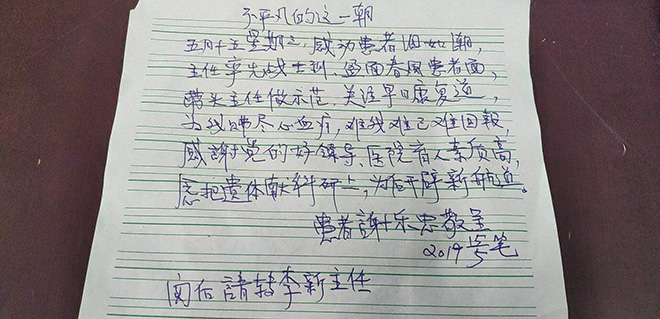 不平凡的这一朝
五月十五星期三,感动患者泪如潮,
主任率先战士到、迎面春风患者面,
带头主任做示范、关注早日康复道,
为我呷尽心血疗,难我难己难回报,
感謝党的好領导、医院育人素质高,
愿把遗体献科研上,为后开辟新航道。
患者謝乐忠敬呈
2019 15/5笔
阅后請转李新主任